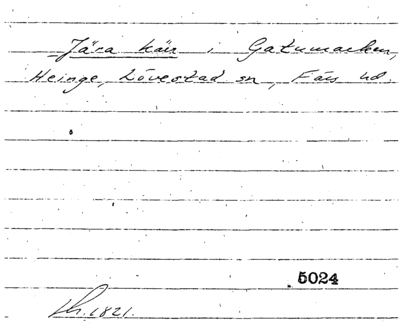 Jära kärr i Gatumarken,
Heinge, Lövestad sn, Färs hd.
5024
Lh. 1821.